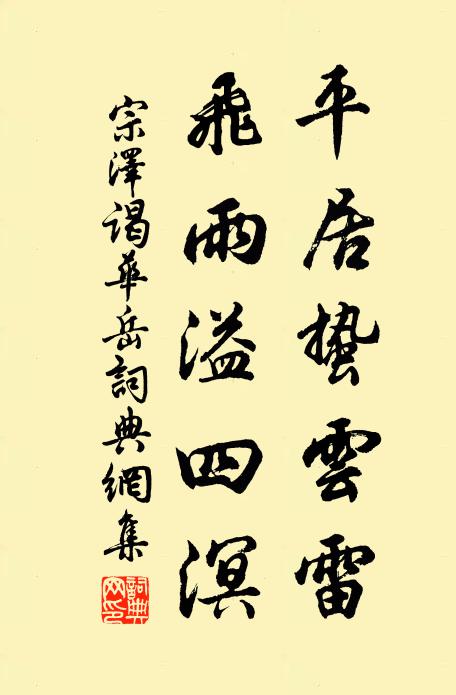 平居蟄雲雷
飛雨溢四溟
宗澤謁華岳詞典網集
詞典網印